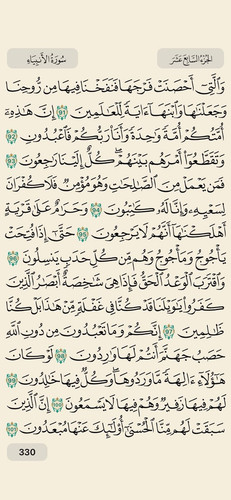 الجزء السابع عشر
سورة الأنبياء
وَٱلَّتِىٓ أَحۡصَنَتۡ فَرۡجَهَا فَنَفَخۡنَا فِيهَا مِن رُّوحِنَا
وَجَعَلۡنَٰهَا وَٱبۡنَهَآ ءَايَةٗ لِّلۡعَٰلَمِينَ ٩١ إِنَّ هَٰذِهِۦٓ
أُمَّتُكُمۡ أُمَّةٗ وَٰحِدَةٗ وَأَنَا۠ رَبُّكُمۡ فَٱعۡبُدُونِ ٩٢
وَتَقَطَّعُوٓاْ أَمۡرَهُم بَيۡنَهُمۡۖ كُلٌّ إِلَيۡنَا رَٰجِعُونَ ٩٣
فَمَن يَعۡمَلۡ مِنَ ٱلصَّٰلِحَٰتِ وَهُوَ مُؤۡمِنٞ فَلَا كُفۡرَانَ
لِسَعۡيِهِۦ وَإِنَّا لَهُۥ كَٰتِبُونَ ٩٤ وَحَرَٰمٌ عَلَىٰ قَرۡيَةٍ
أَهۡلَكۡنَٰهَآ أَنَّهُمۡ لَا يَرۡجِعُونَ ٩٥ حَتَّىٰٓ إِذَا فُتِحَتۡ
يَأۡجُوجُ وَمَأۡجُوجُ وَهُم مِّن كُلِّ حَدَبٖ يَنسِلُونَ ٩٦
وَٱقۡتَرَبَ ٱلۡوَعۡدُ ٱلۡحَقُّ فَإِذَا هِىَ شَٰخِصَةٌ أَبۡصَٰرُ ٱلَّذِينَ
كَفَرُواْ يَٰوَيۡلَنَا قَدۡ كُنَّا فِى غَفۡلَةٖ مِّنۡ هَٰذَا بَلۡ كُنَّا
ظَٰلِمِينَ ٩٧ إِنَّكُمۡ وَمَا تَعۡبُدُونَ مِن دُونِ ٱللَّهِ
حَصَبُ جَهَنَّمَ أَنتُمۡ لَهَا وَٰرِدُونَ ٩٨ لَوۡ كَانَ
هَٰٓؤُلَآءِ ءَالِهَةٗ مَّا وَرَدُوهَاۖ وَكُلّٞ فِيهَا خَٰلِدُونَ ٩٩
لَهُمۡ فِيهَا زَفِيرٞ وَهُمۡ فِيهَا لَا يَسۡمَعُونَ ١٠٠ إِنَّ ٱلَّذِينَ
سَبَقَتۡ لَهُم مِّنَّا ٱلۡحُسۡنَىٰٓ أُوْلَٰٓئِكَ عَنۡهَا مُبۡعَدُونَ ١٠١
330